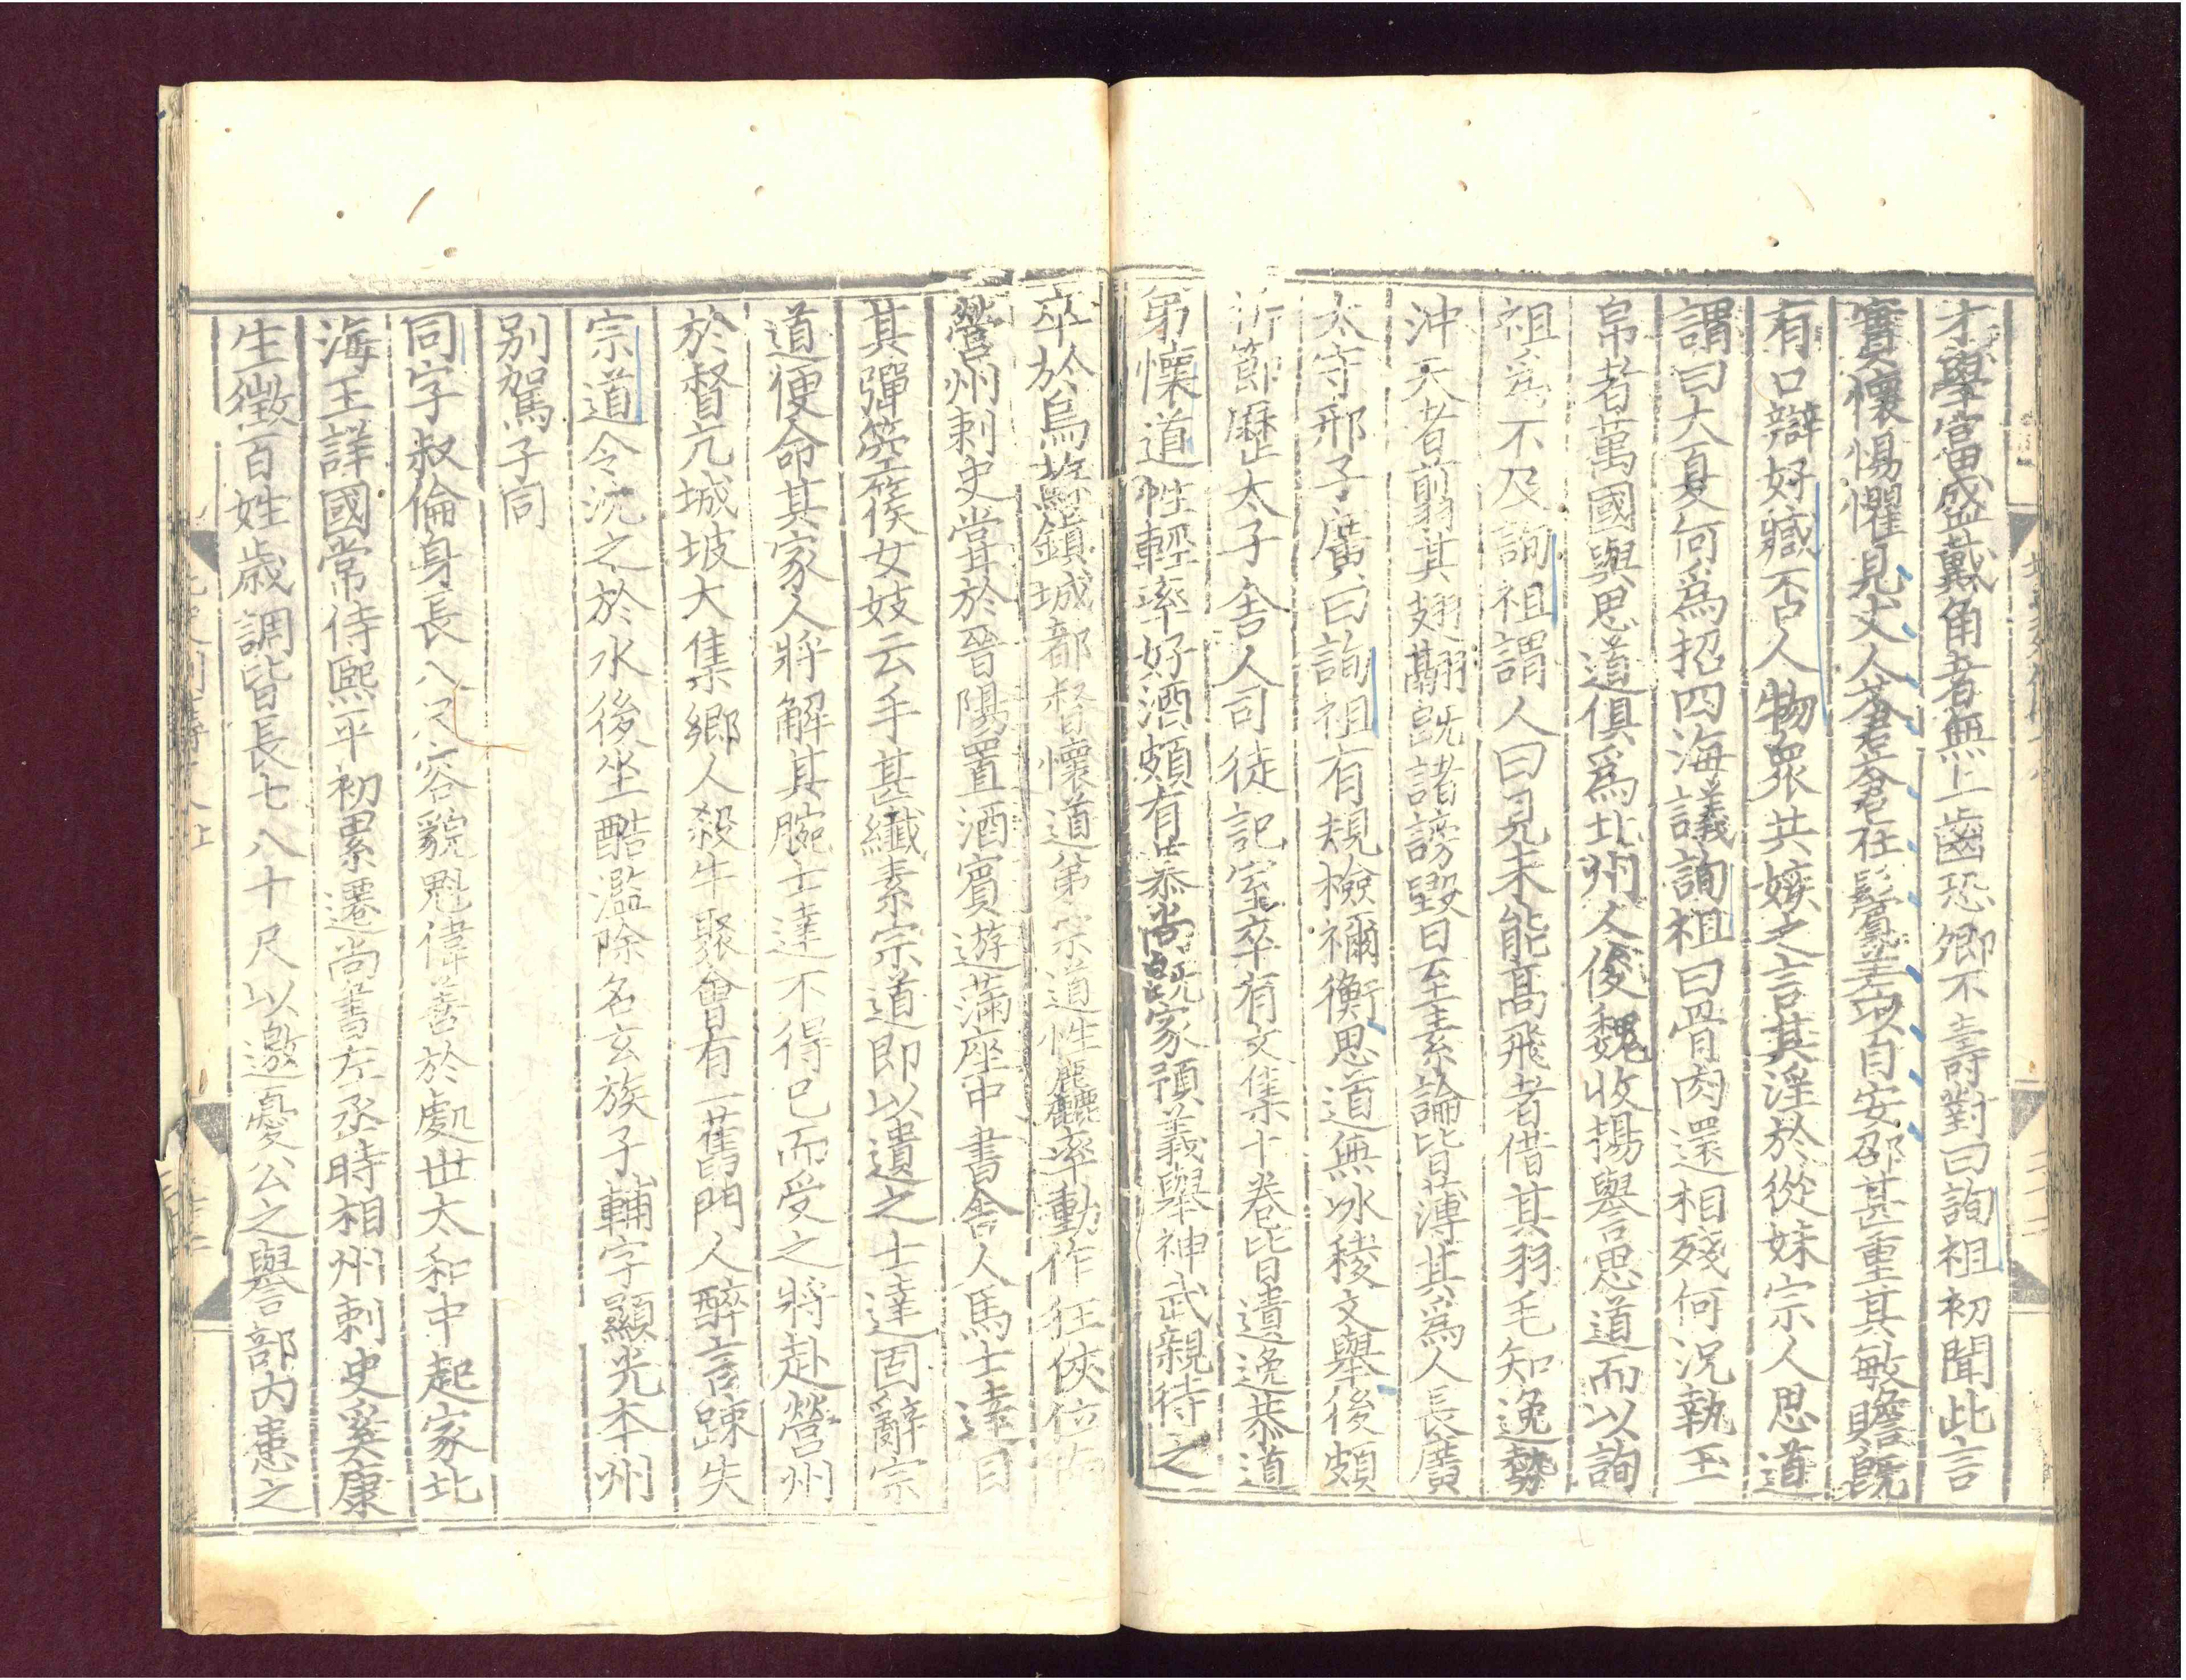 才學富盛戴角者無上齒恐卿不壽對曰詢祖初聞此言
實懷惕懼見丈人蒼蒼在鬢差以自安邵甚重其敏贍旣
有口辯好臧否人物衆共嫉之言其淫於從妹宗人思道
謂曰大夏何爲招四海議詢祖曰骨肉還相殘何況執玉
帛者萬國與思道俱爲北州人俊魏收揚譽思道而以詢
祖爲不及詢祖謂人曰見未能高飛者借其羽毛知逸勢
沖天者剪其翅翮旣諸謗毀日至素論皆薄其爲人長廣
太守邢子廣曰詢祖有規檢禰衡思道無冰稜文舉後頗
折節歷太子舍人司徒記室卒有文集十卷皆遺逸恭道
弟懷道性輕率好酒頗有慕尚以家預義舉神武親待之
卒於烏蘇鎮城都督懷道弟宗道性麤率動作狂俠位南
營州刺史嘗於晉陽置酒賓遊滿座中書舍人馬士達目
其彈箜篌女妓云手甚纖素宗道即以遺之士達固辭宗
道便命其家人將解其腕士達不得已而受之將赴營州
於督亢城坡大集鄉人殺牛聚會有一舊門人醉言疎失
宗道令沈之於水後坐酷濫除名玄族子輔字顯光本州
別駕子同
同字叔倫身長八尺容貌魁偉善於處世太和中起家北
海王詳國常侍熙平初累遷尚書左丞時相州刺史奚康
生徵百姓歲調皆長七八十尺以邀憂公之譽部內患之